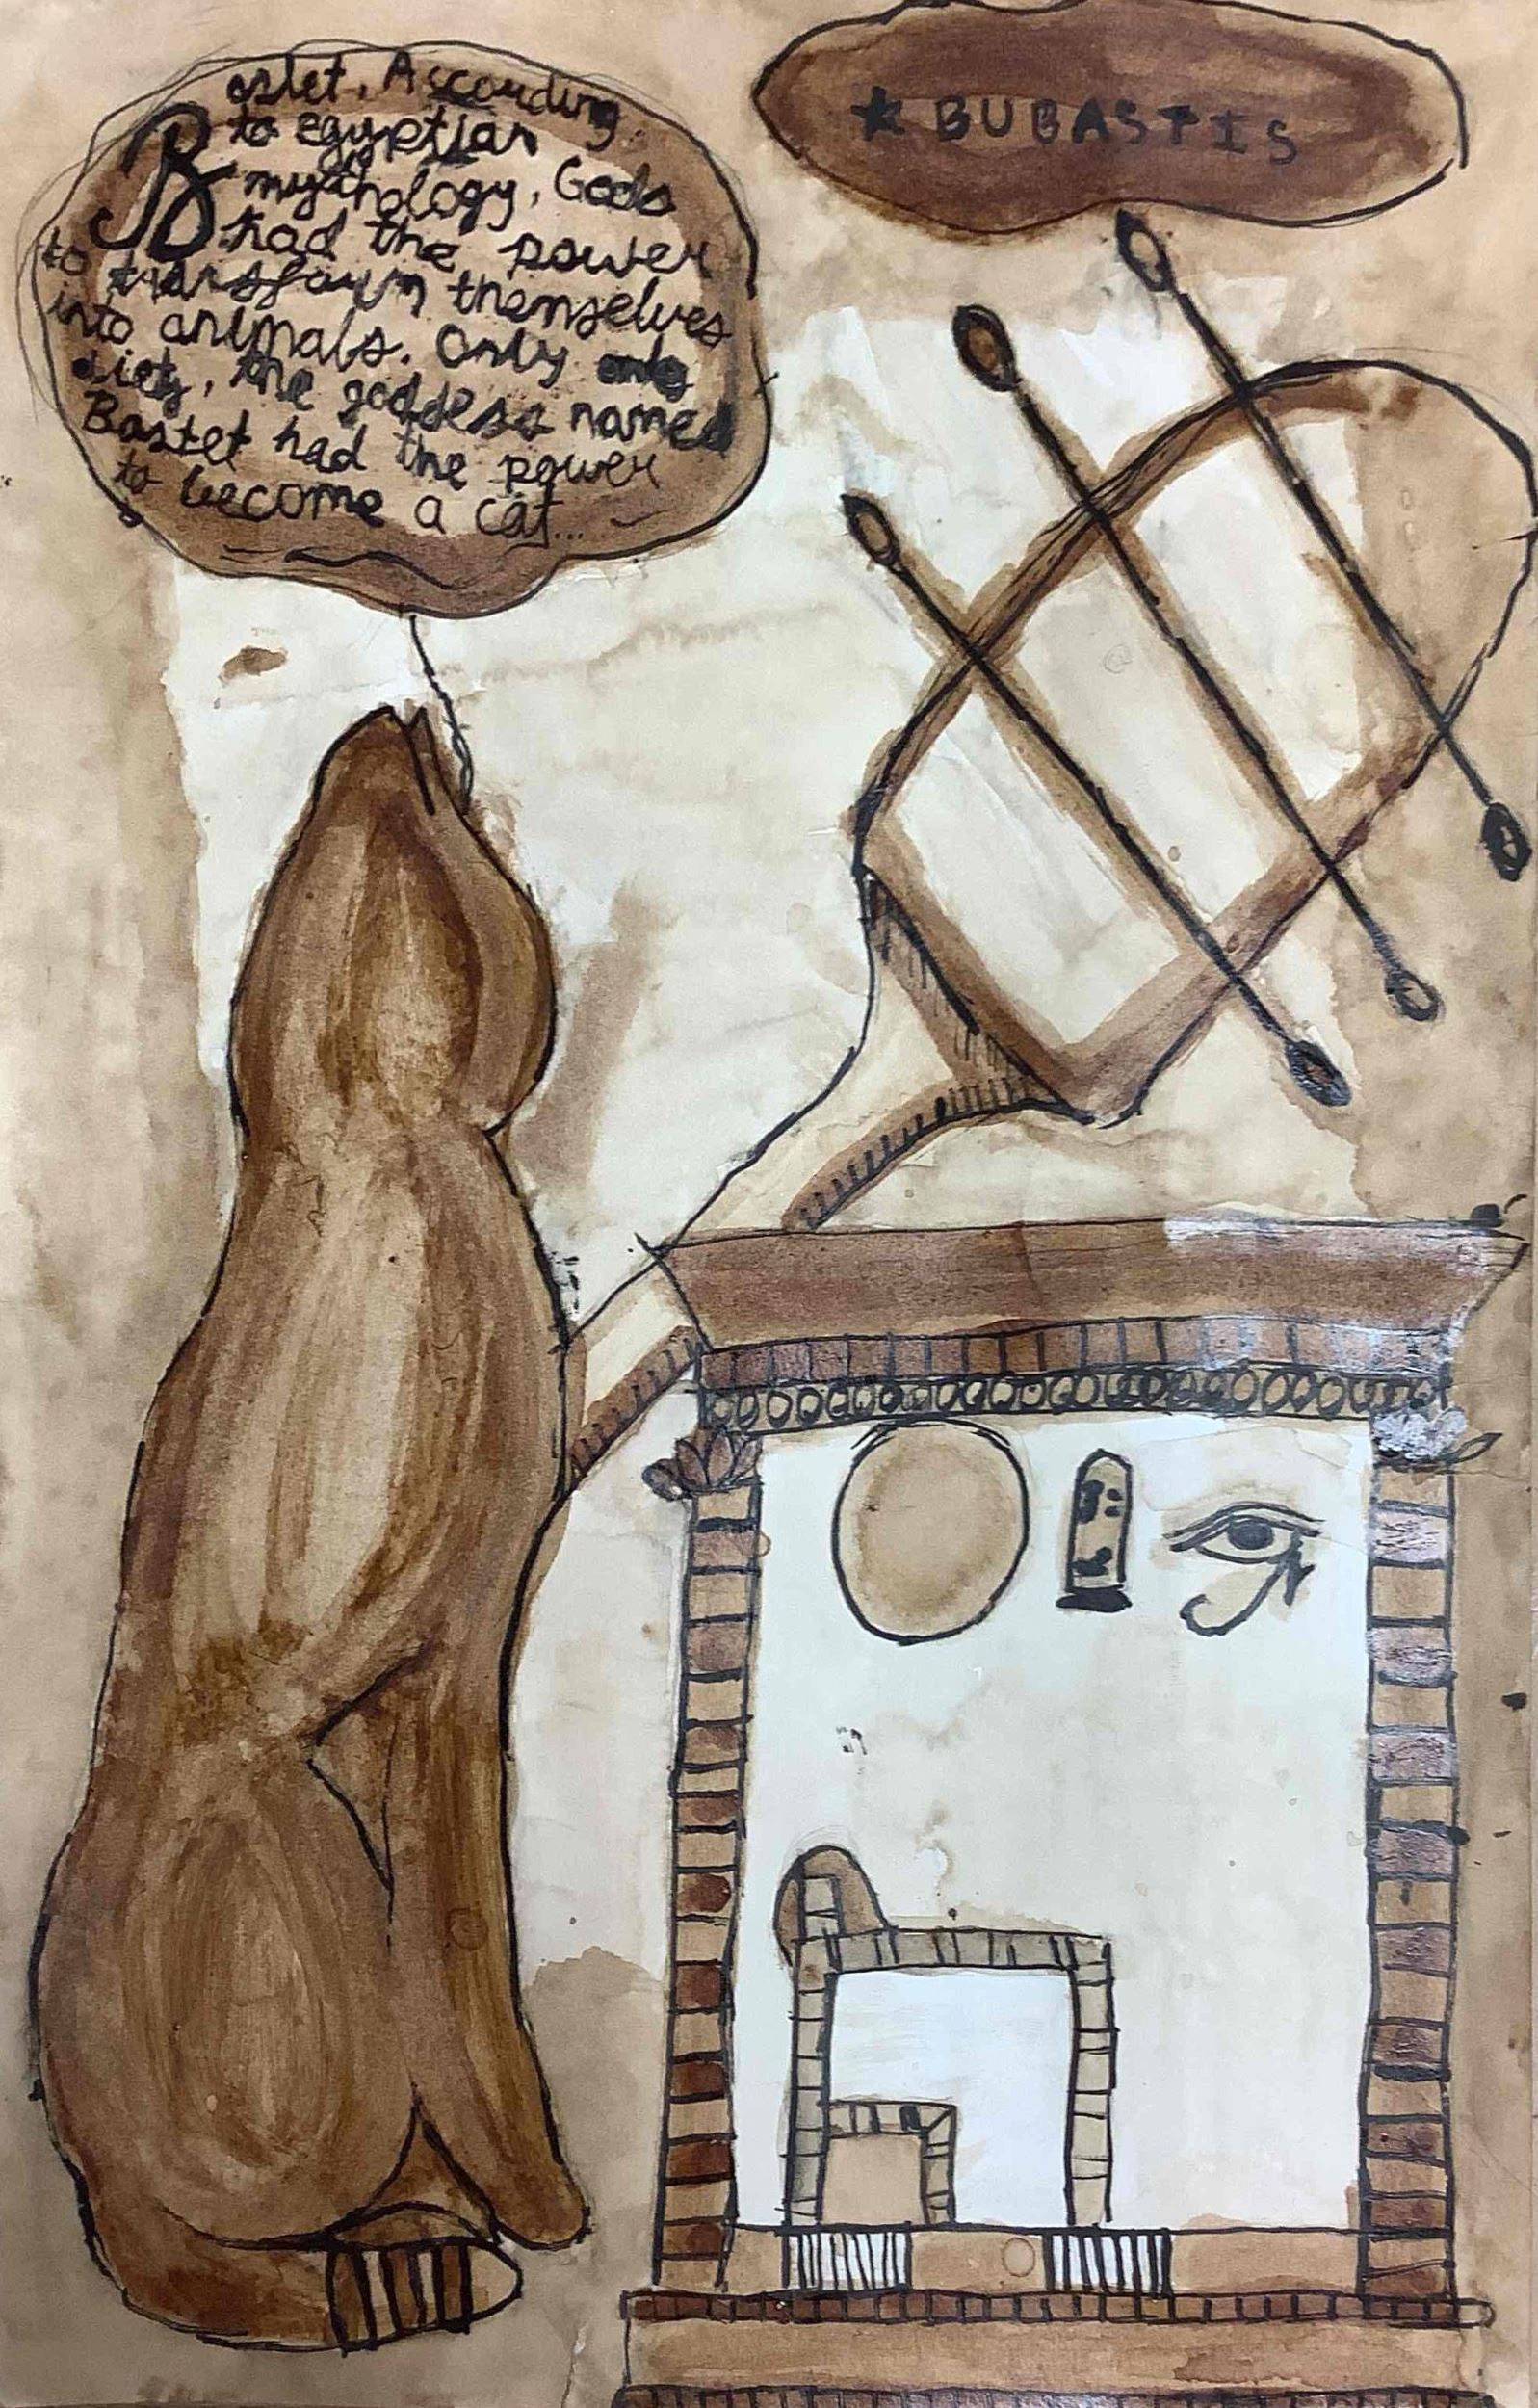 Bastet, Asccording
to egyptian
mythology, Gods
had the power
to transform themselves
into animals. Only only
diety, the goddess named
Bastet had the power
to become a cat...
* BUBASTIS